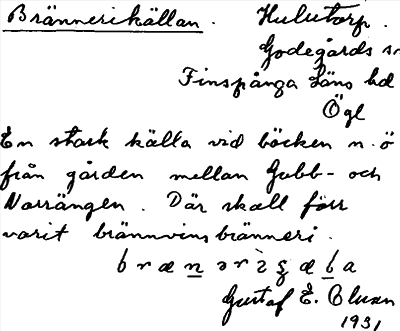 Brännerikällan. Hulutorp.
Godegårds sn
Finspånga läns hd
Ögl
En stark källa vid böcken n.ö
från gården mellan Gubb- och
Norrängen. Där skall förr
varit brännvinsbränneri.
Gustaf E. Bluxn
1931